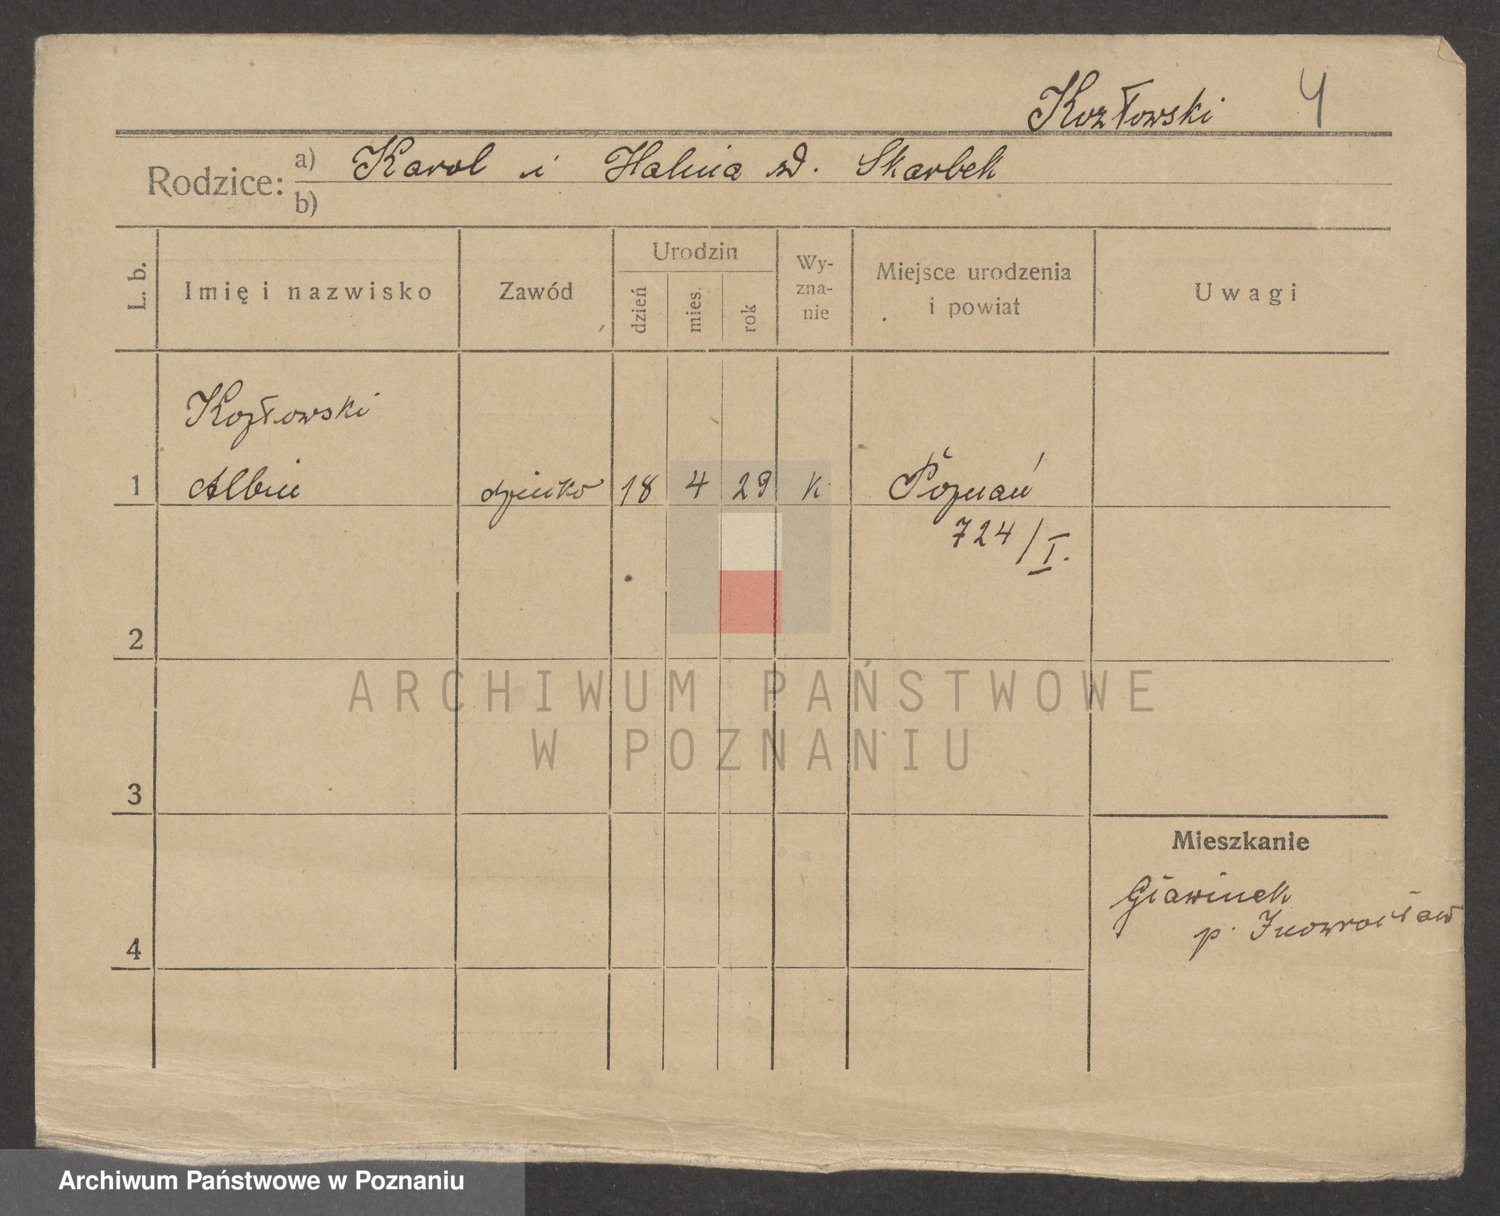 Kozłowski 4
Rodzice: a) Karol i Halina zd. Skarbek
b)
L. b. Imię i nazwisko Zawód Urodzin dzień mies. rok Wy-zna-nie Miejsce urodzenia i powiat Uwagi
Kozłowski
1 Albin dziecko 18 4 29 k Poznań
724/I.
2
ARCHIWUM PAŃSTWOWE
W POZNANIU
3
Mieszkanie
4 p. Inowrocław
Archiwum Państwowe w Poznaniu